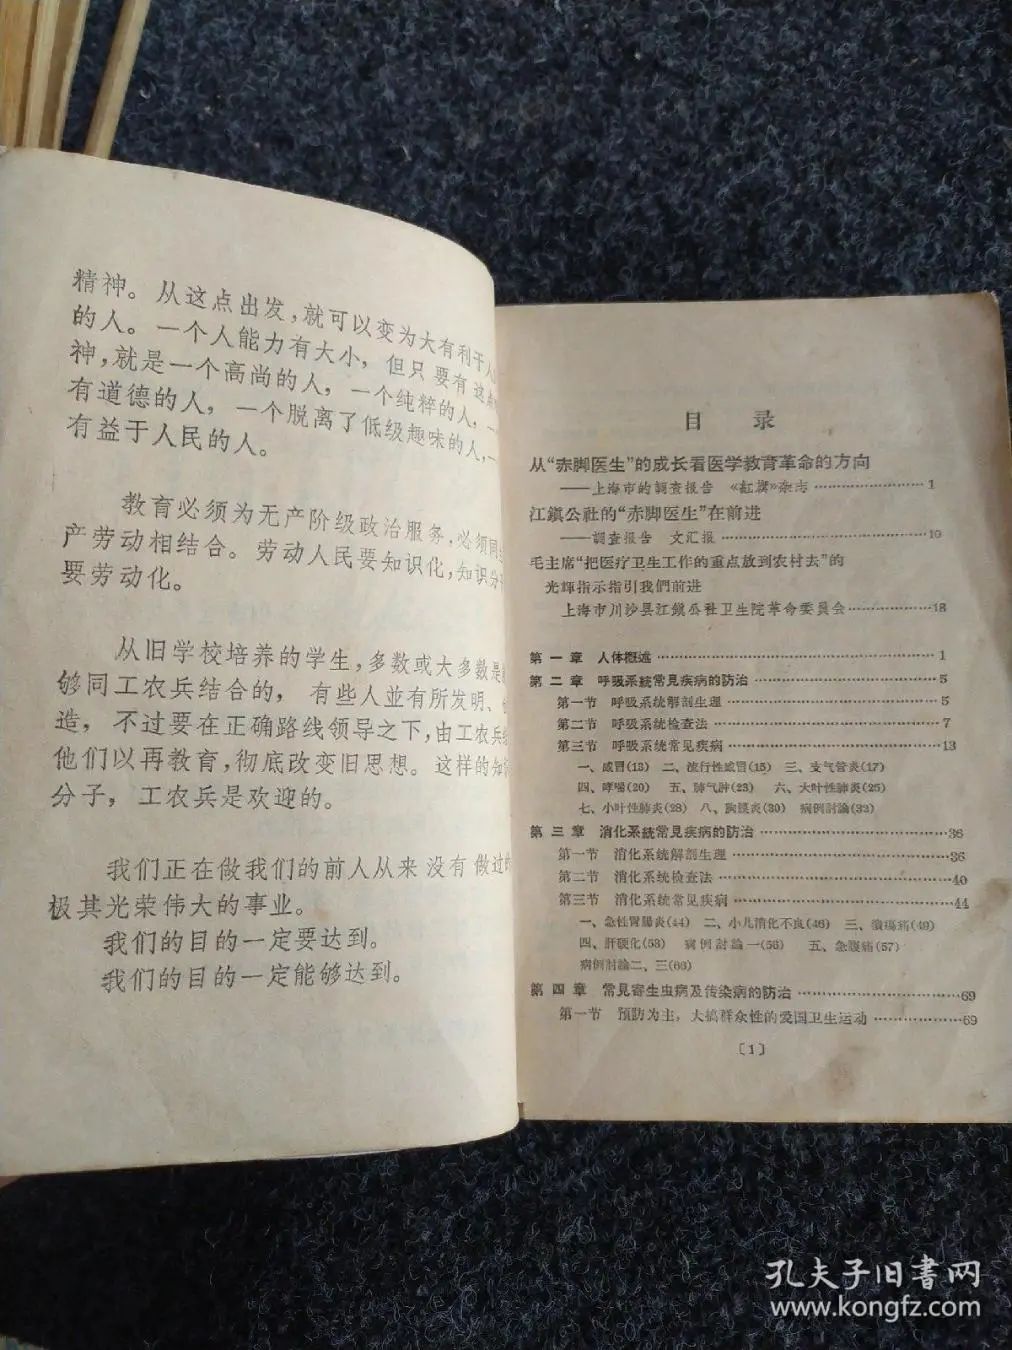 精神。从这点出发，就可以变为大有利于人
的人。一个人能力有大小，但只要有这点
神，就是一个高尚的人，一个纯粹的人，一
有道德的人，一个脱离了低级趣味的人，一
有益于人民的人。
教育必须为无产阶级政治服务，必须同
产劳动相结合。劳动人民要知识化，知识分
要劳动化。
从旧学校培养的学生，多数或大多数是
够同工农兵结合的，有些人並有所发明、
造，不过要在正确路线领导之下，由工农兵
他们以再教育，彻底改变旧思想。这样的知
分子，工农兵是欢迎的。
我们正在做我们的前人从来没有做过的
极其光荣伟大的事业。
我们的目的一定要达到。
我们的目的一定能够达到。
目 录
从“赤脚医生”的成长看医学教育革命的方向
——上海市的調查报告 《紅旗》杂志……………1
江鎮公社的“赤脚医生”在前进
——調查报告 文汇报……………10
毛主席“把医疗卫生工作的重点放到农村去”的
光輝指示指引我們前进
上海市川沙县江鎮公社卫生院革命委員会……………18
第一章 人体概述……………1
第二章 呼吸系統常見疾病的防治……………5
第一节 呼吸系統解剖生理……………5
第二节 呼吸系統检查法……………7
第三节 呼吸系統常見疾病……………13
一、感冒(13) 二、流行性感冒(15) 三、支气管炎(17)
四、哮喘(20) 五、肺气肿(23) 六、大叶性肺炎(25)
七、小叶性肺炎(28) 八、胸膜炎(30) 病例討論(32)
第三章 消化系統常見疾病的防治……………36
第一节 消化系統解剖生理……………36
第二节 消化系統检查法……………40
第三节 消化系統常見疾病……………44
一、急性胃腸炎(44) 二、小儿消化不良(46) 三、潰瘍病(49)
四、肝硬化(53) 病例討論一(56) 五、急腹痛(57)
病例討論二、三(66)
第四章 常見寄生虫病及传染病的防治……………69
第一节 預防为主，大搞群众性的爱国卫生运动……………69
〔1〕
孔夫子旧書网
www.kongfz.com